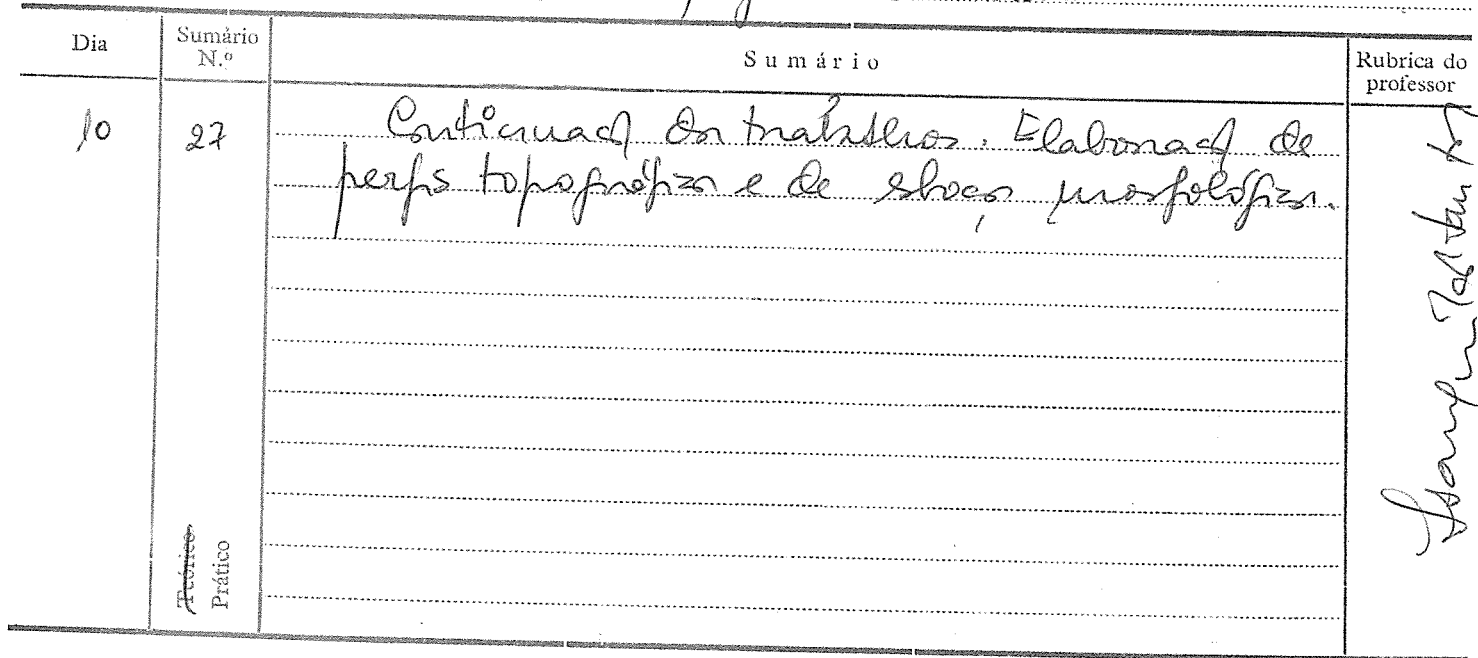 Dia
Sumário
N.º
Sumário
Rubrica do
professor
10
27
Continuação dos trabalhos. Elaboração de
perfis topográficos e de esboços morfológicos.
Teórico
Prático